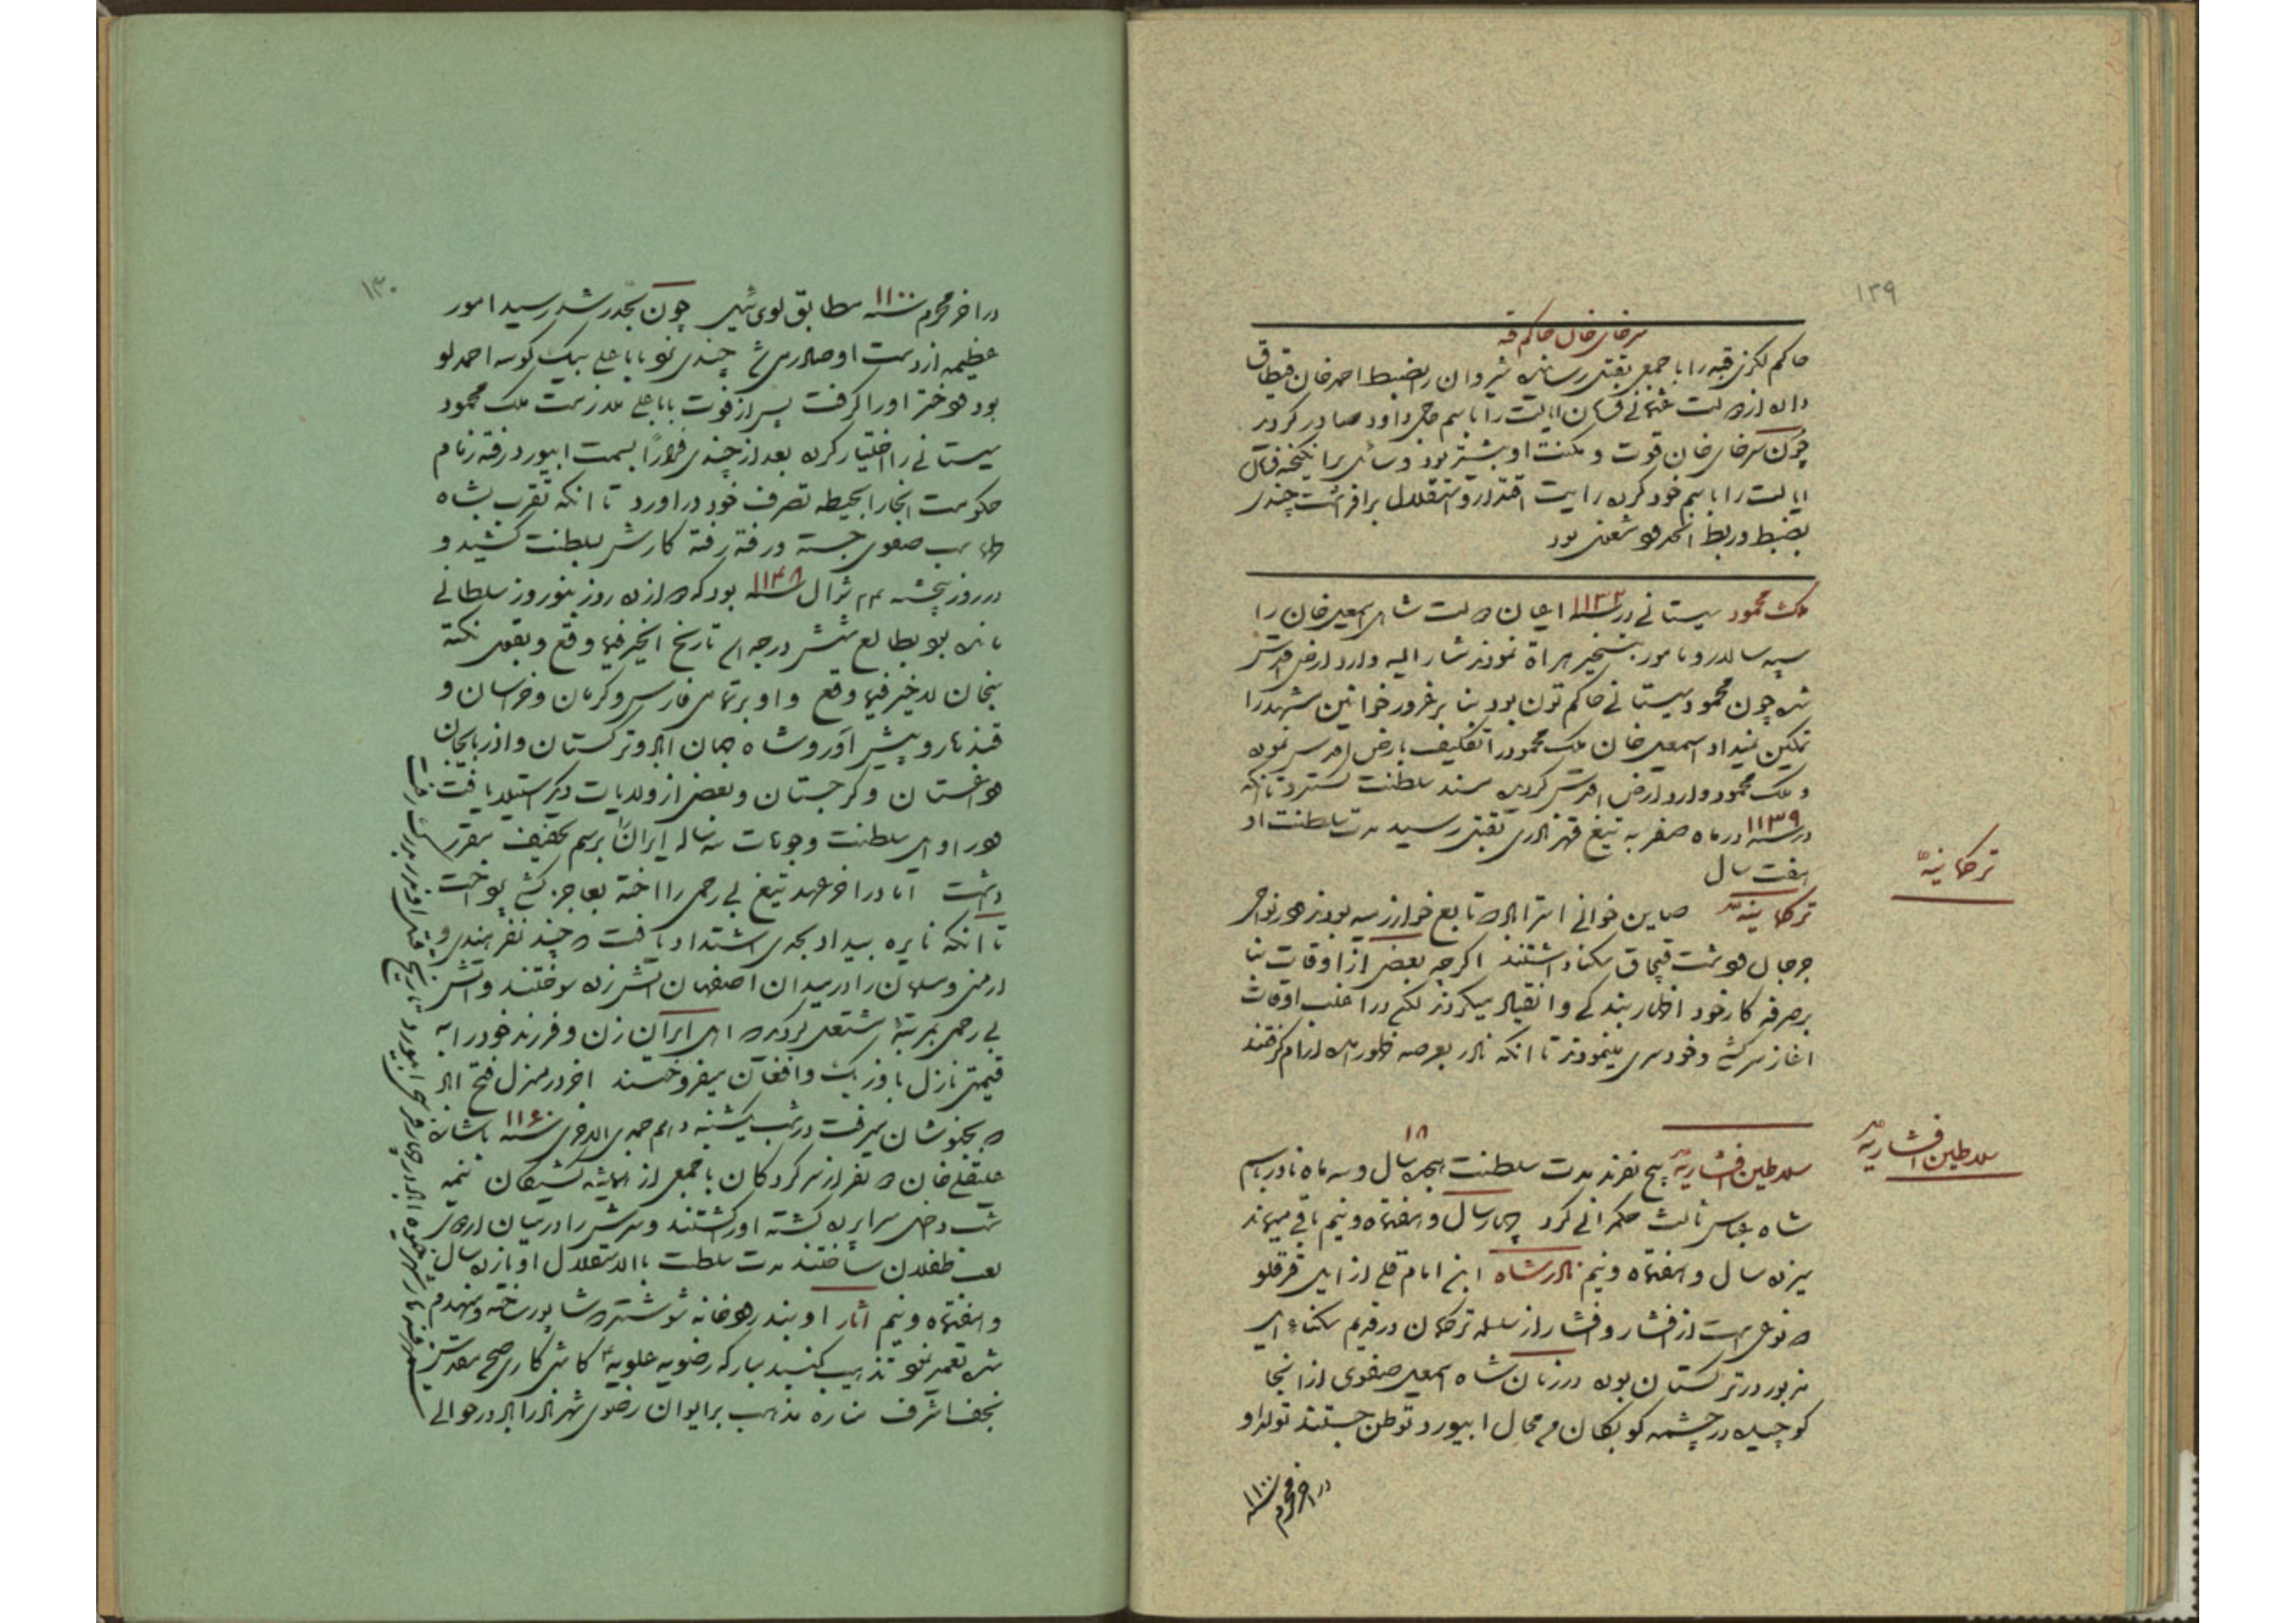 ۱۲۹
سرخای خان حاکم قبه
حاکم لکزی قبه را با جمعی بقتل رسانیده شیروان را بضبط احمد خان
داده از دولت عثمانی فرمان ایالت را باسم حاجی داود صادر کردید
چون سرخای خان قوت و مکنت او بیشتر بود وسائل برانکیخته فرمان
ایالت را باسم خود کرده رایت اقتدار و استقلال برافراشت چندی
بضبط و ربط آنحدود مشغول بود
ملک محمود سیستانی در سنه ۱۱۳۲ اعیان دولت شاهی اسمعیل خان را
سپه سالار و مامور بتسخیر هراة نمودند مشار الیه وارد ارض اقدس
شده چون محمود سیستانی حاکم تون بود بنا بر غرور خوانین مشهد را
تمکین نمیداد اسمعیل خان ملک محمود را تکلیف بارض اقدس نموده
و ملک محمود وارد ارض اقدس کردیده مسند سلطنت کسترد تا آنکه
در سنه ۱۱۳۹ در ماه صفر به تیغ قهر نادری بقتل رسید مدت سلطنت او
هفت سال
ترکمانیه
ترکمانیه صاین خوانی استراباد تابع خوارزمیه بودند در نواحی
جرجان و دشت قبچاق سکنا داشتند اکرچه بعضی از اوقات بنا
بر صرفه کار خود اظهار بندکی و انقیاد میکردند لکن در اغلب اوقات
اغاز سرکشی و خودسری مینمودند تا انکه نادر بعرصه ظهور آمده آرام کرفتند
سلاطین افشاریه
۱۸
سلاطین افشاریه پنج نفرند مدت سلطنت هیجده سال و سه ماه نادر باسم
شاه عباس ثالث حکمرانی کرد چهار سال و هفتماه و نیم باقی میماند
سیزده سال و هفتماه و نیم نادر شاه ابن امام قلی از ایل قرقلو
و نوعی است از افشار و افشار از سلسله ترکمان در قدیم سکناء ایل
مزبور در ترکستان بوده در زمان شاه اسمعیل صفوی از انجا
کوچیده در چشمه کوبکان من محال ابیورد توطن جستند تولد او
در اخر محرم سنه ۱۱۰۰
۱۳۰
در اخر محرم سنه ۱۱۰۰ مطابق لوی ئیل چون بحد رشد رسید امور
عظیمه از دست او صادر می شد چندی نزد بابا علی بیک کوسه احمد لو
بود و دختر او را کرفت پس از فوت بابا علی ملازمت ملک محمود
سیستانی را اختیار کرده بعد از چندی فراراً بسمت ابیورد رفته زمام
حکومت انجا را بحیطه تصرف خود در اورد تا انکه تقرب بشاه
طهماسب صفوی جسته و رفته رفته کارش بسلطنت کشید و
در روز پنجشنبه ۲۴ شوال سنه ۱۱۴۸ بود که دوازده روز بنوروز سلطانی
مانده بود بطالع شش درجه اسد تاریخ الخیر فیما وقع و بقول نکته
سنجان لا خیر فیما وقع و او بر تمامی فارس و کرمان و خراسان و
قندهار و پیشاور و شاه جهان اباد و ترکستان و اذربایجان
و داغستان و کرجستان و بعضی از ولایات دیکر استیلا یافت
در اوایل سلطنت وجوهات سه ساله ایران را برسم تخفیف مقرر
داشت اما در اخر عهد تیغ بی رحمی را اخته بعاجز کشی پرداخت
تا آنکه نایره بیداد بحدی اشتداد یافت و چند نفر هندی و
ارمنی و مسلمان را در میدان اصفهان آتش زده سوختند و آتش
بی رحمی بمرتبهٔ مشتعل کردید و اهل ایران زن و فرزند خود را به
قیمت نازل باوزبک و افغان میفروختند اخر در منزل فتح اباد
بخبوشان میرفت در شب یکشنبه جمادی الاخری سنه ۱۱۶۰ باشاره
علیقلی خان و نفر از سرکردکان با جمعی از همیشه کشیکان نیمه
شب داخل سراپرده کشته او را کشتند و سرش را در میان اردوی
لعب طفلان ساختند مدت سلطنت بالاستقلال او یازده سال
و هفتماه و نیم آثار او بند رودخانه شوشتر و شاپور ساخته و منهدم
شده تعمیر نمود تذهیب کنبد مبارکه رضویه علویه کاشی کاری صحن مقدس
نجف اشرف مناره مذهب بر ایوان رضوی شهر نادر اباد در حوالی